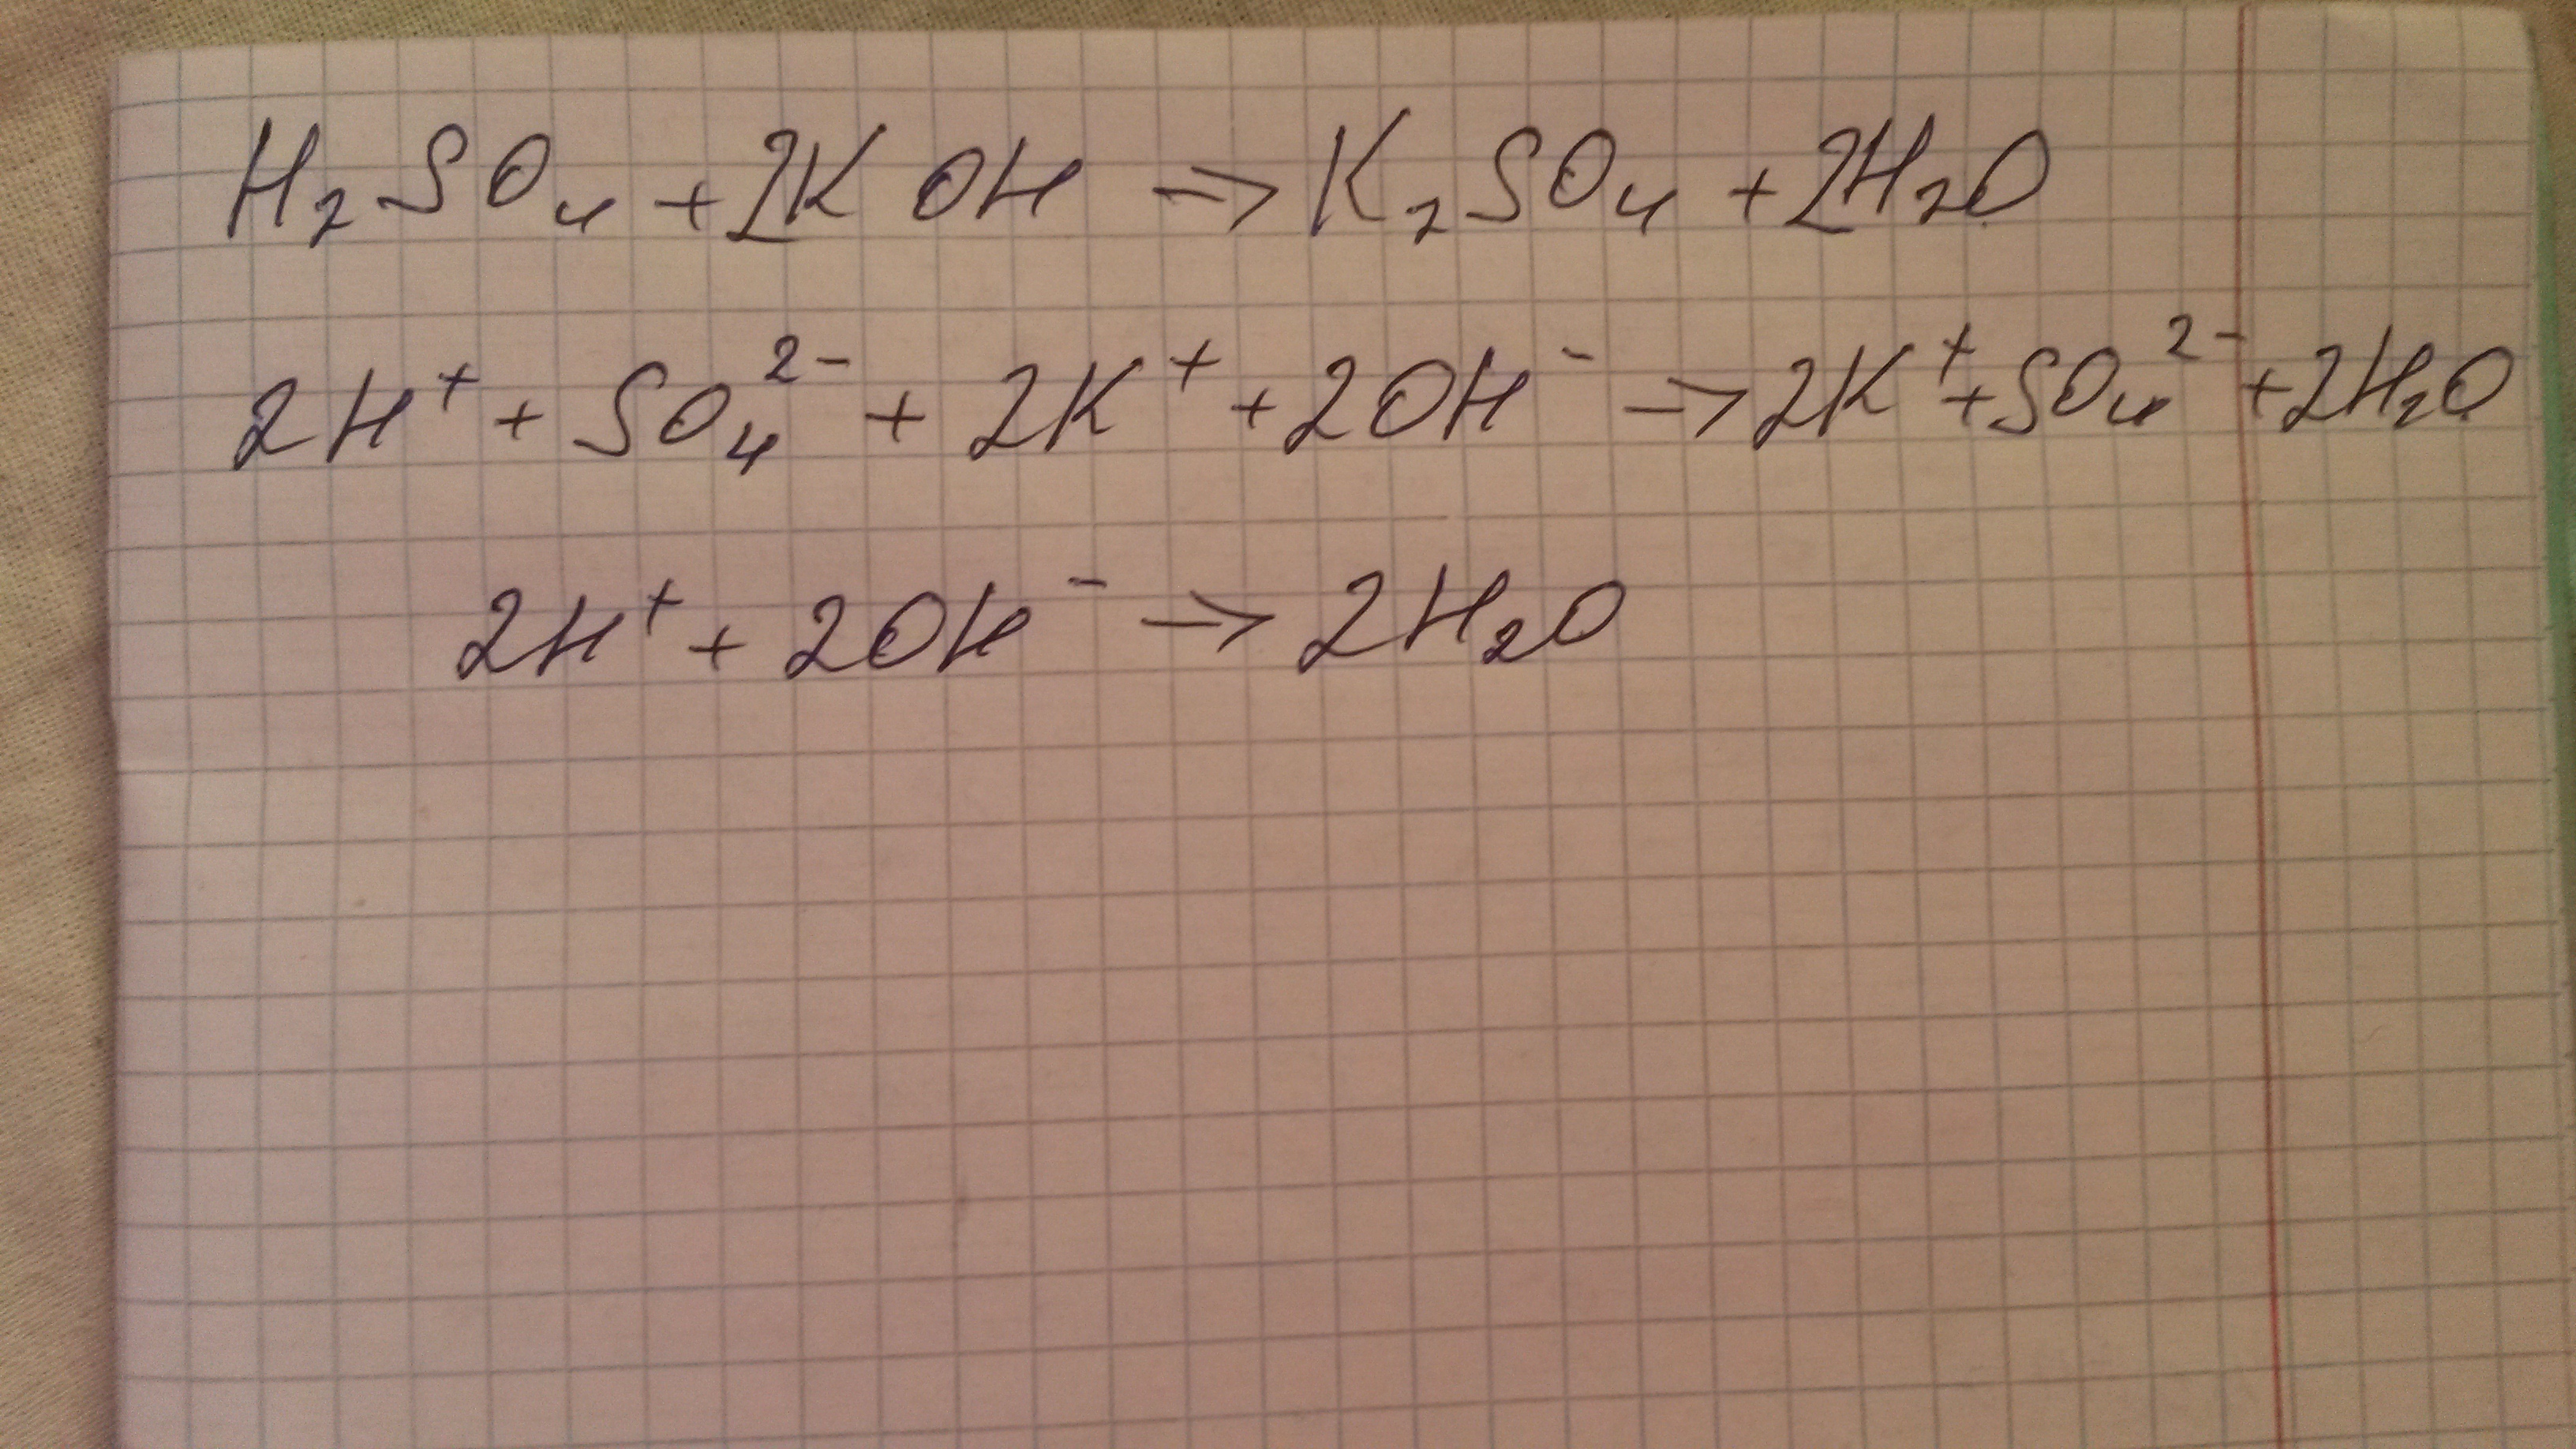 H₂SO₄ + 2KOH → K₂SO₄ + 2H₂O
2H⁺ + SO₄²⁻ + 2K⁺ + 2OH⁻ → 2K⁺ + SO₄²⁻ + 2H₂O
2H⁺ + 2OH⁻ → 2H₂O